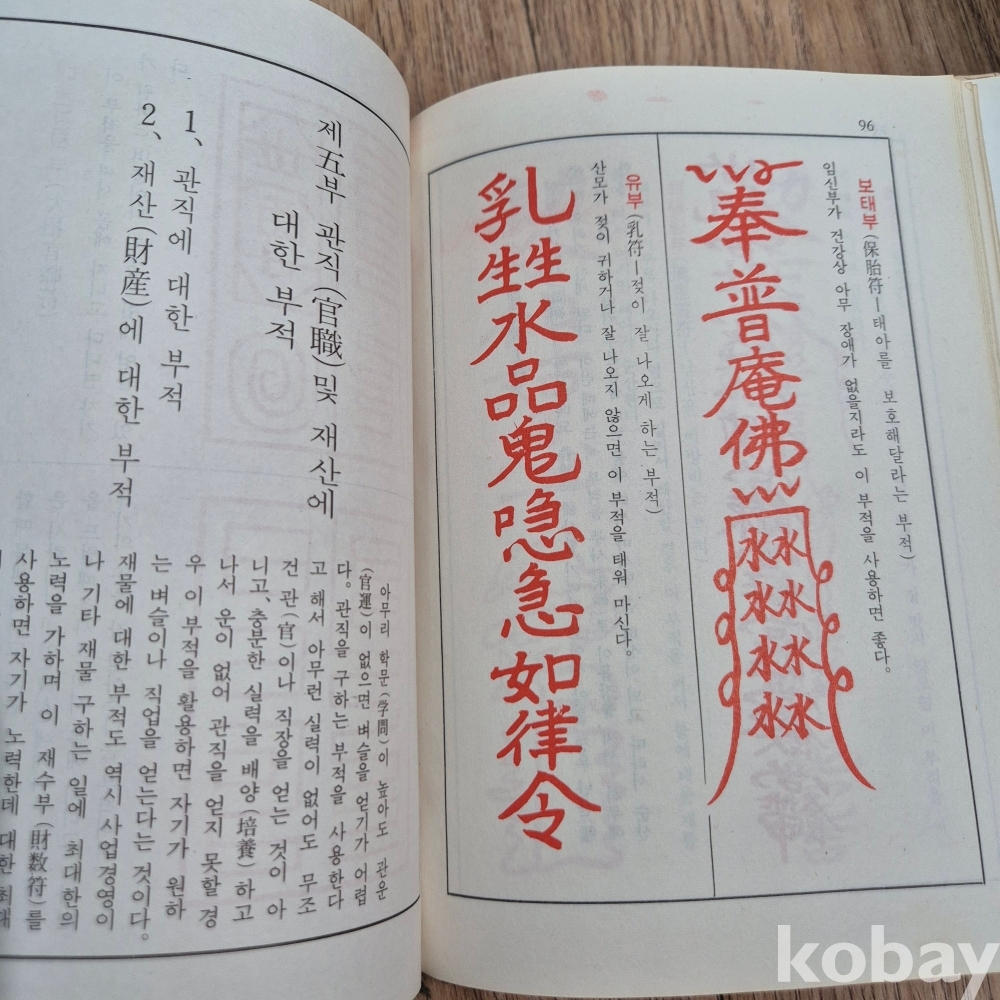 96
보태부(保胎符—태아를 보호해달라는 부적)
임신부가 건강상 아무 장애가 없을지라도 이 부적을 사용하면 좋다。
奉普庵佛
水水
水水
水水
水水
유부(乳符—젖이 잘 나오게 하는 부적)
산모가 젖이 귀하거나 잘 나오지 않으면 이 부적을 태워 마신다。
乳生生水品鬼喼急如律令
제五부 관직(官職) 및 재산에
대한 부적
1、관직에 대한 부적
2、재산(財産)에 대한 부적
아무리 학문(学問)이 높아도 관운
(官運)이 없으면 벼슬을 얻기가 어렵
다。관직을 구하는 부적을 사용한다
고 해서 아무런 실력이 없어도 무조
건 관(官)이나 직장을 얻는 것이 아
니고、충분한 실력을 배양(培養)하고
나서 운이 없어 관직을 얻지 못할 경
우 이 부적을 활용하면 자기가 원하
는 벼슬이나 직업을 얻는다는 것이다。
재물에 대한 부적도 역시 사업경영이
나 기타 재물 구하는 일에 최대한의
노력을 가하며 이 재수부(財数符)를
사용하면 자기가 노력한데 대한 최대
kobay